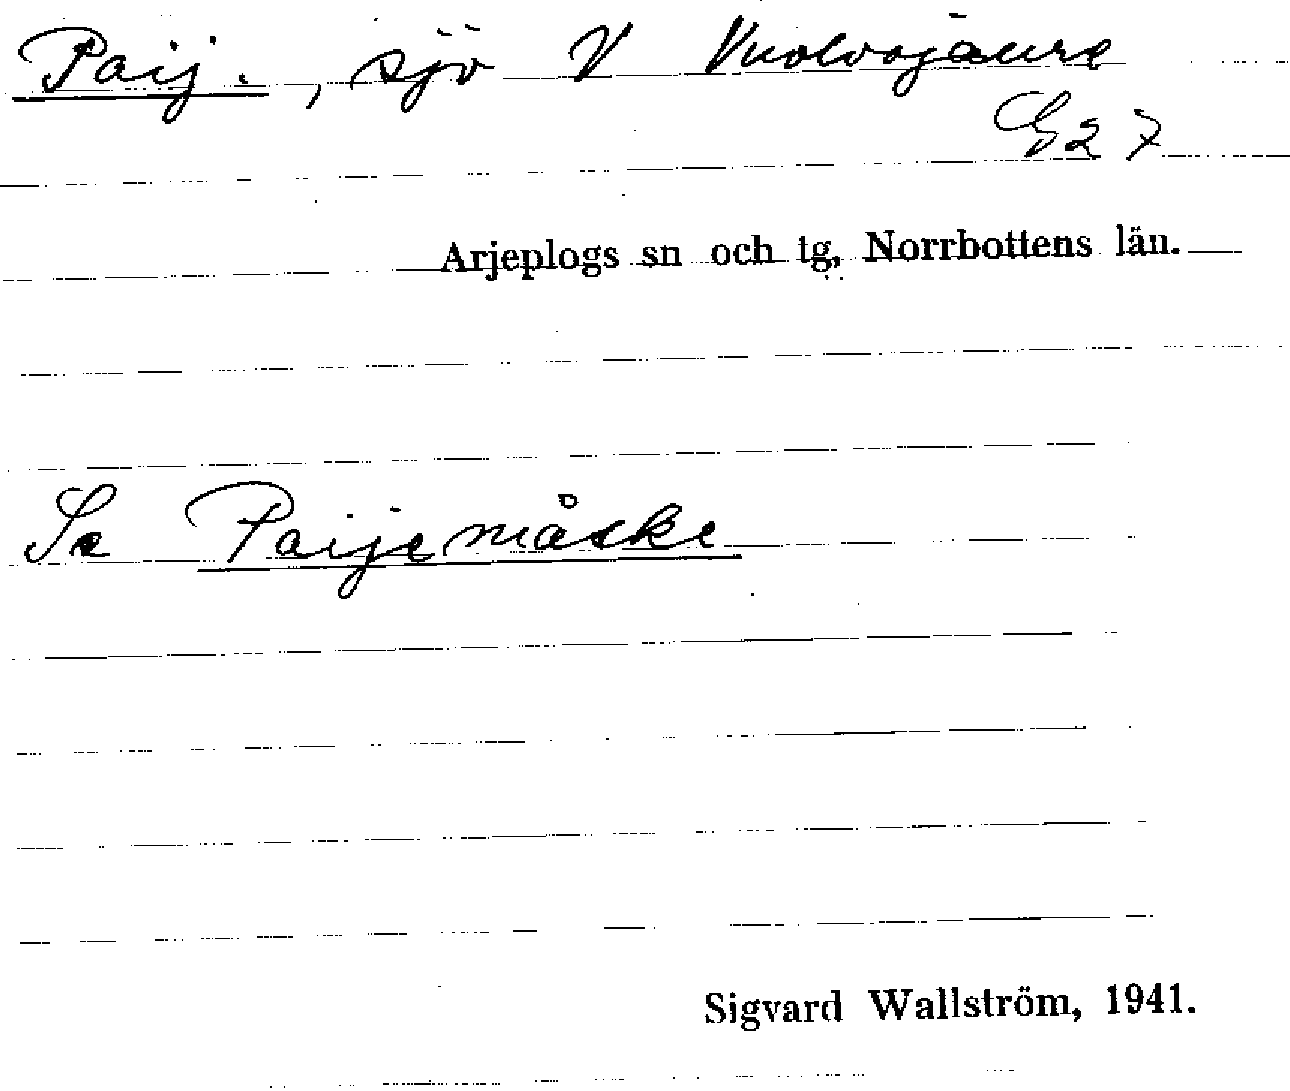 Paij. , sjö V Vuolvojaure
G27
Arjeplogs sn och tg, Norrbottens län.
Se Paijemåske
Sigvard Wallström, 1941.